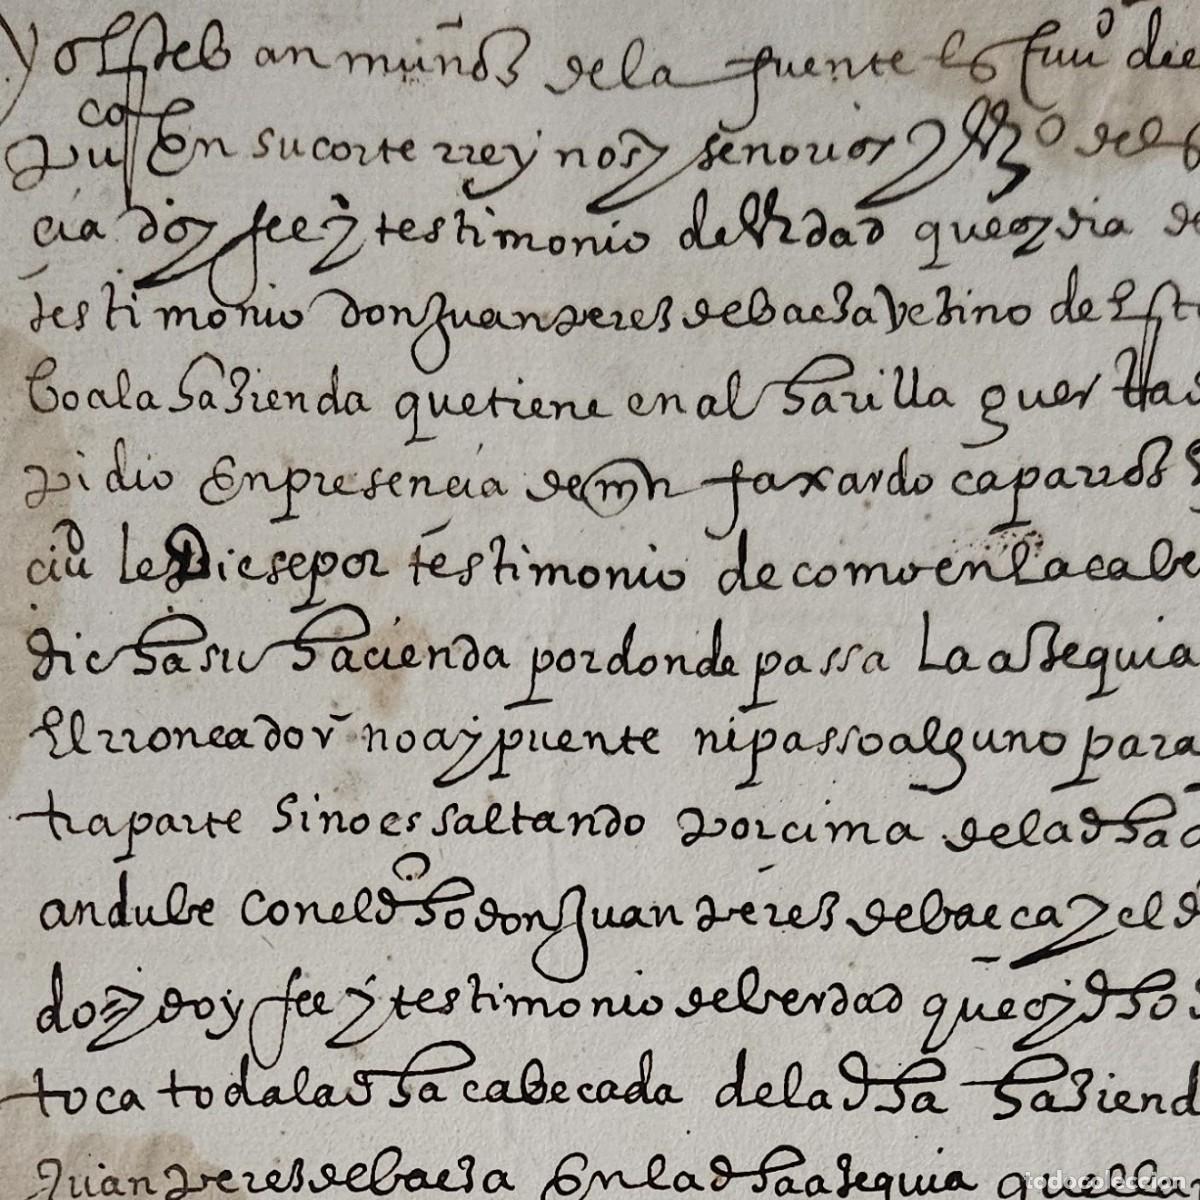 yo esteban muños de la fuente es
co
puu en su corte rrey nos y señorios y del
cia doy fee y testimonio de verdad que oy dia de
testimonio don Juan peres de baesa vesino de este
to a la hasienda que tiene en al havilla guerttas
pidio en presencia de faxardo caparros
le diese por testimonio de como en la cabe
dicha su hacienda por donde passa la asequia
El rroncador no ay puente ni passo alguno para
tra parte sino es saltando por cima de la dha
andube con el dho don Juan peres de baeca y el d
doy fee y testimonio de berdad que oy dho
toca toda la dha cabecada de la dha hasiend
Juan peres de baesa En la dha asequia
todocoleccion